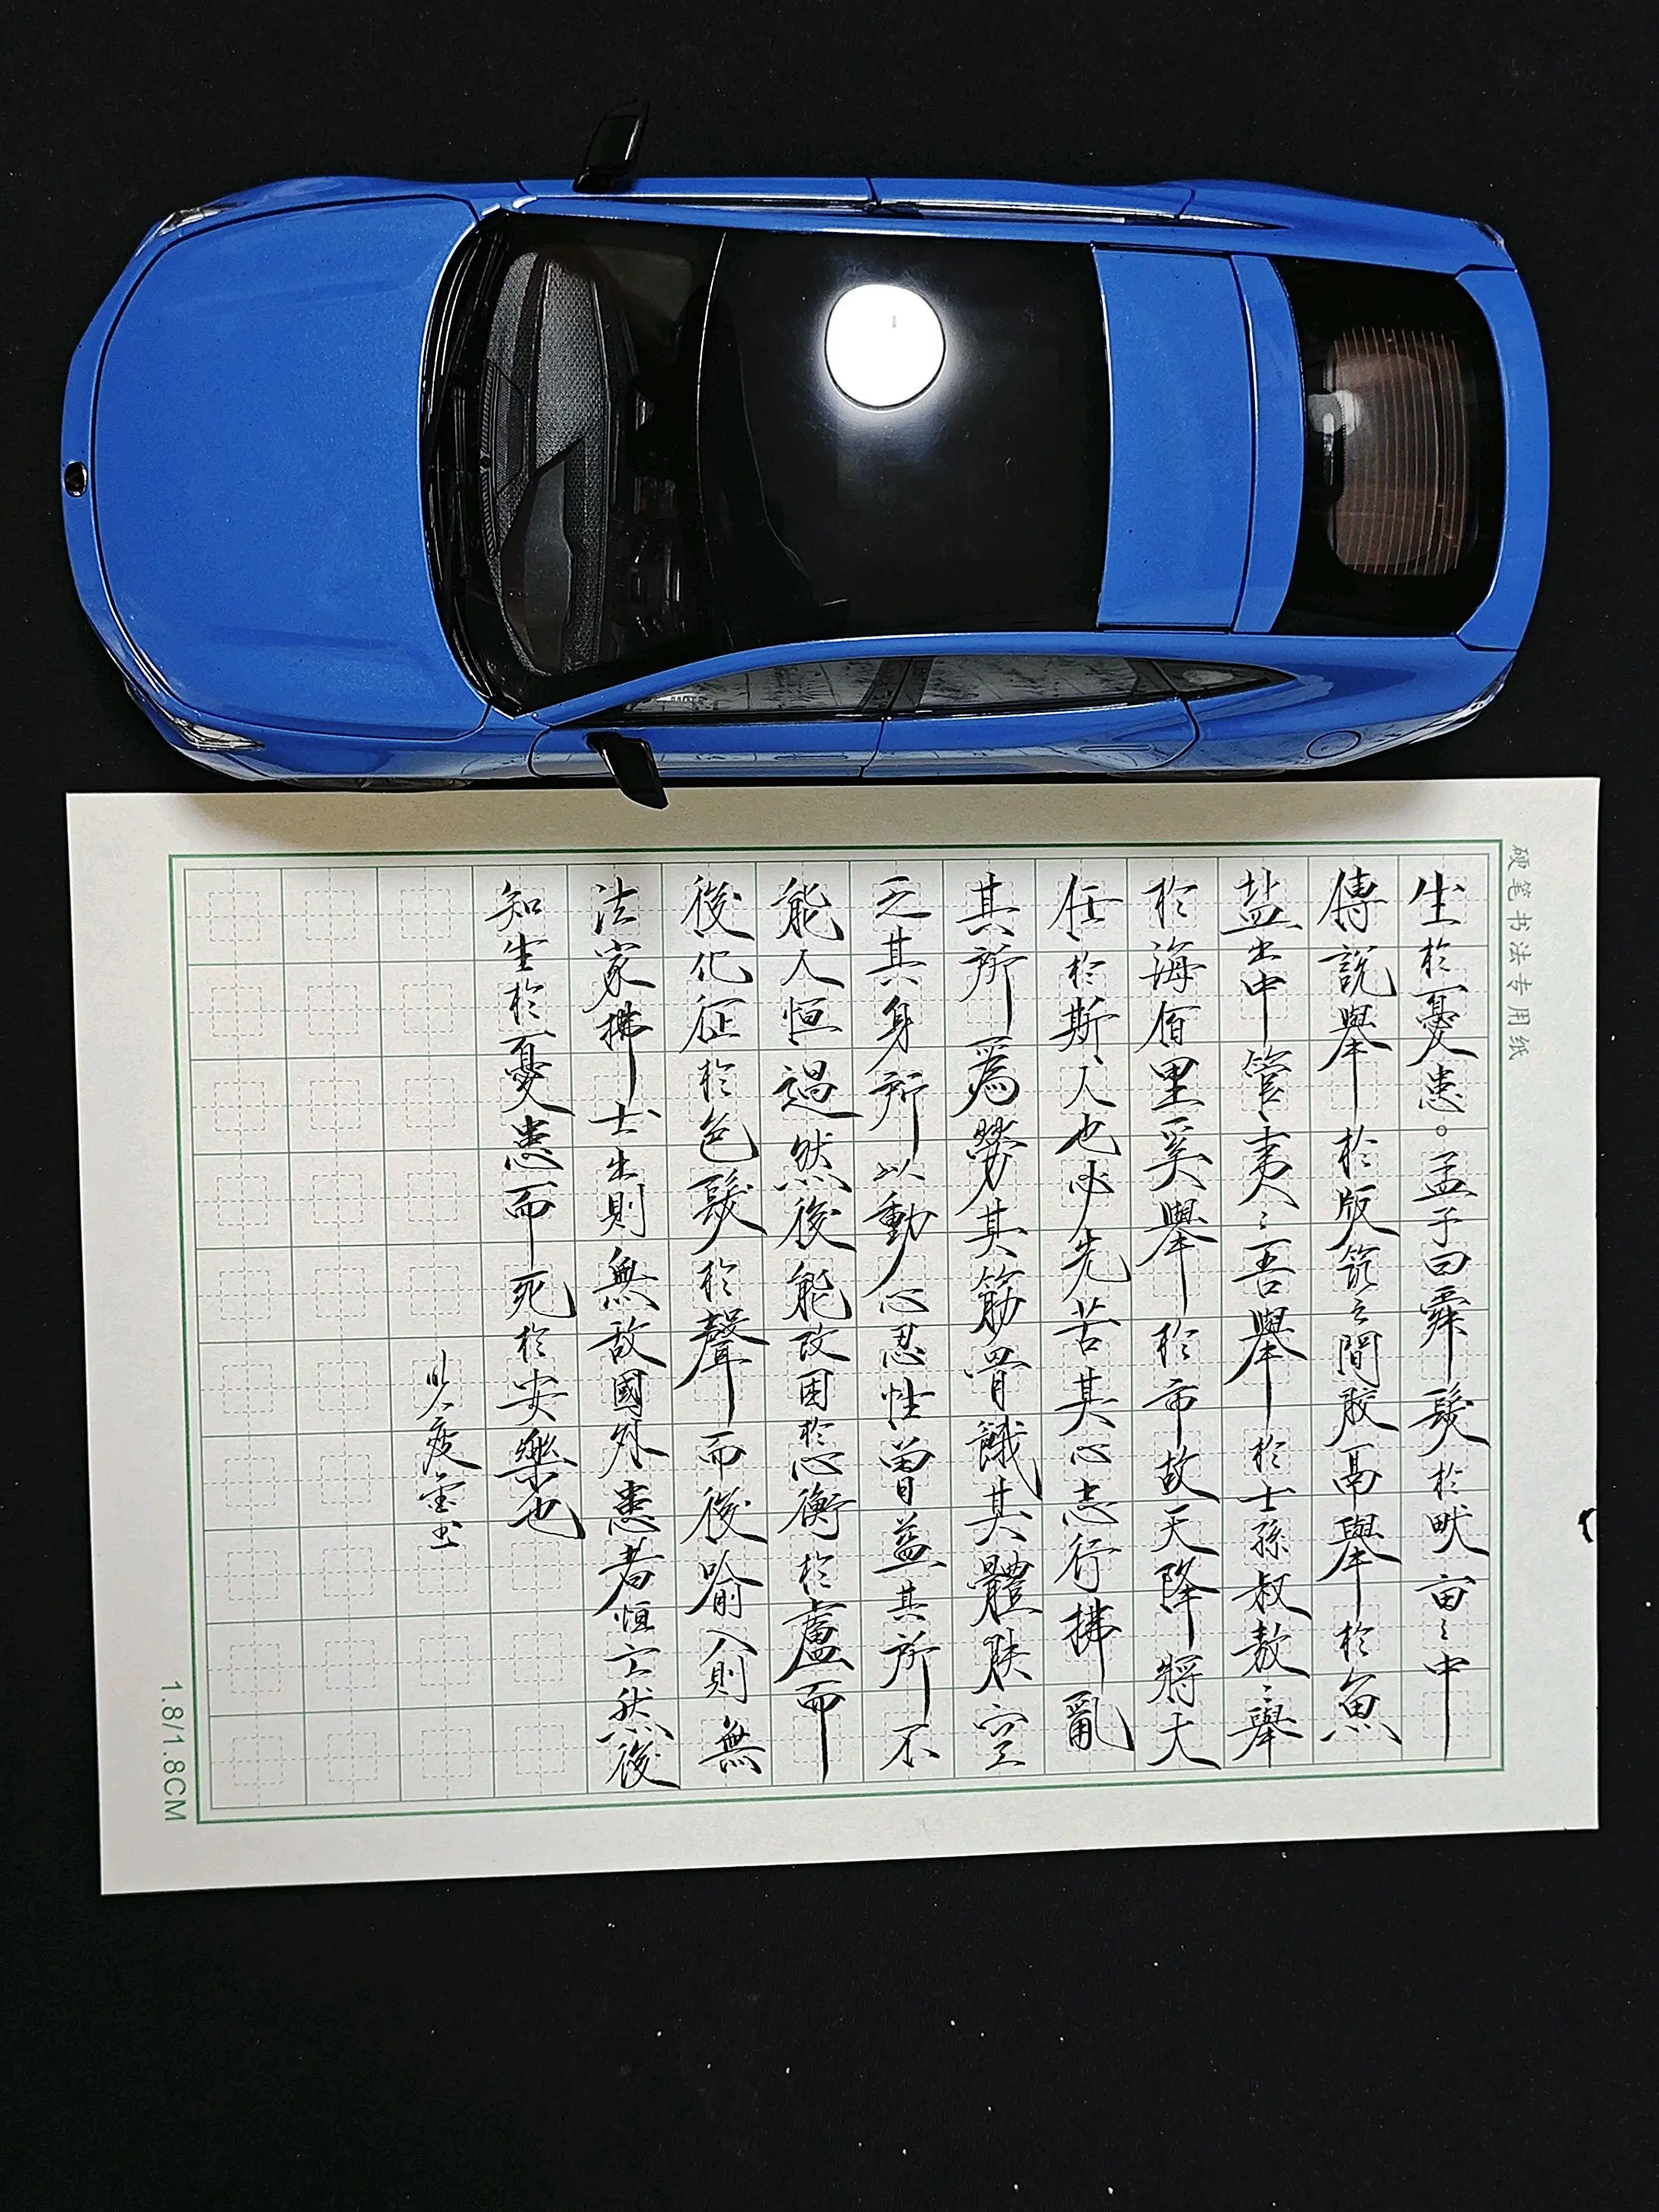 硬笔书法专用纸
生於憂患。孟子曰舜髮於畎亩〻中
傅説舉於版筑之間胶鬲舉於魚
盐之中管夷〻吾舉於士孫叔敖〻舉
於海佰里奚舉於市故天降將大
任於斯人也必先苦其心志行拂亂
其所爲勞其筋骨餓其體肤空
乏其身所以動心忍性曾益其所不
能人恒過然後能改困於心衡於盧而
後化征於色髮於聲而後喻入則無
法家拂士出則無敌國外患者恒亡然後
知生於憂患而死於安樂也
1.8/1.8CM